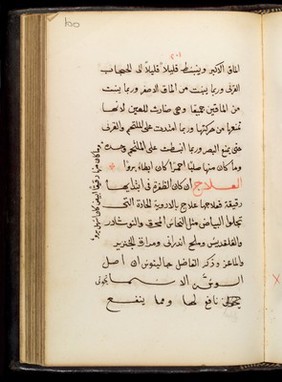 الماق الاكبر وينبسط قليلاً قليلاً الى الحجاب
القرنى وربما ينبت من الماق الاصغر وربما ينبت
من الماقين جميعا وهى ضارة للعين لانها
تمنعها من حركتها وربما امتدت على الملتحم والقرنى
حتى يمنع البصر وربما انبسطت على الملتحم وحده
وما كان منها صلبًا احمرًا كان ابطاء بروا
العلاج ان كان الظفرة فى ابتدايها
رقيقة فعلاجها علاج بالادوية الحادة التى
تجلوا البياض مثل النحاس المحرق والنوشادر
والقلقديس وملح اندرانى ومرارة الخنزير
والماعز وذكر الفاضل جالينوس ان اصل
السوسن الاسمانجونى
نافع لها ومما ينفع
وما كان منها رقيقا ابيض كان اسهل بروا